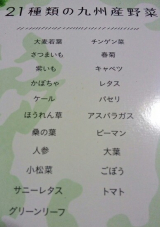 21種類の九州産野菜
大麦若葉 チンゲン菜
さつまいも 春菊
紫いも キャベツ
かぼちゃ レタス
ケール パセリ
ほうれん草 アスパラガス
桑の葉 ピーマン
人参 大葉
小松菜 ごぼう
サニーレタス トマト
グリーンリーフ